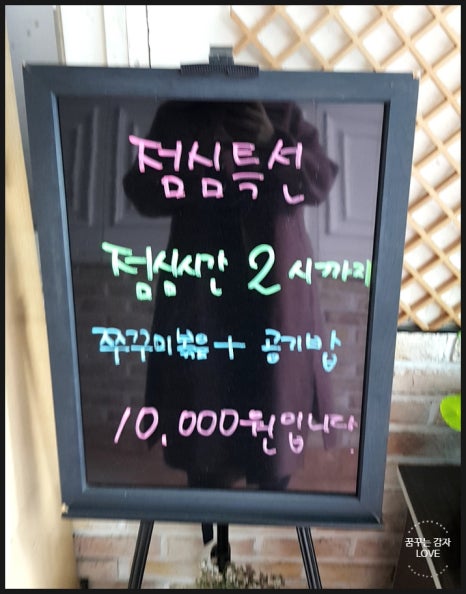 점심특선
점심시간 2시까지
쭈꾸미볶음 + 공기밥
10,000원입니다.
꿈꾸는 감자
LOVE